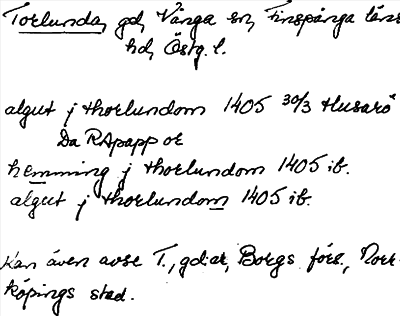 Torlunda, gd, Vånga sn, Finspånga läns
hd, Östg. l.
algut j thorlundom 1405 30/3 Husarö
Da RApapp or
hemming j thorlundom 1405 ib.
algut j thorlundom 1405 ib.
Kan även avse T., gd:ar, Borgs förs., Norr-
köpings stad.